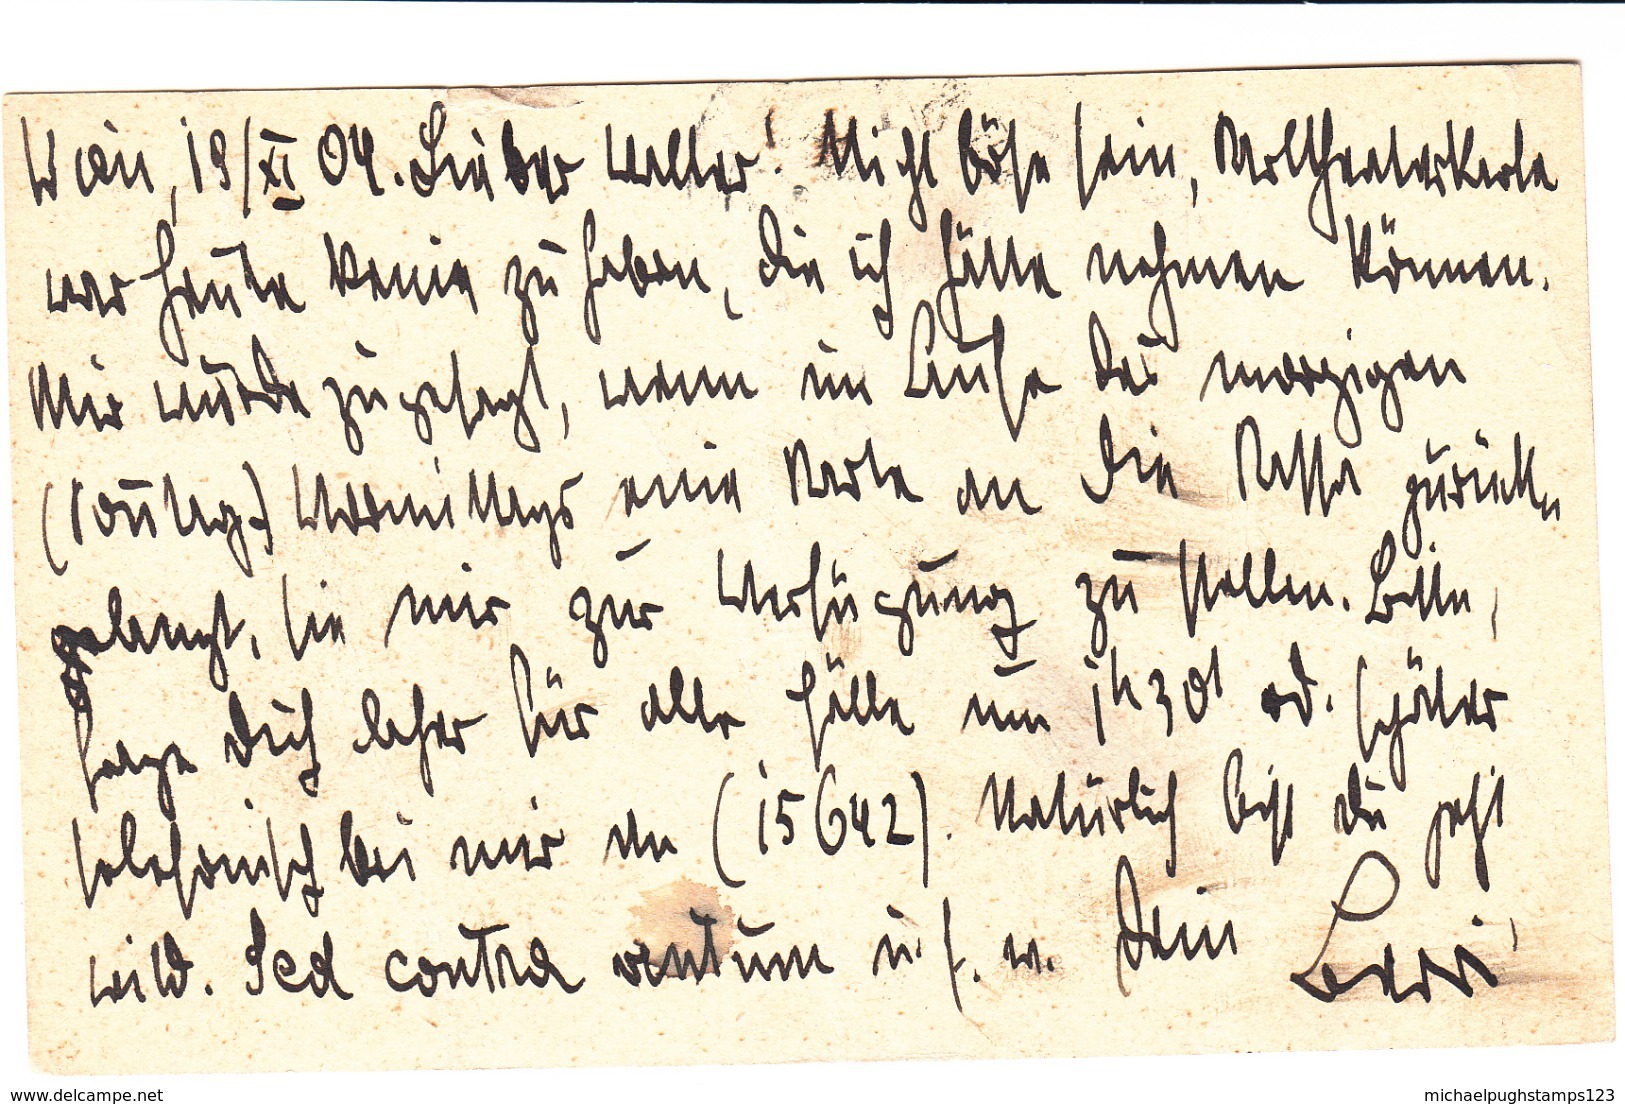 Wien, 19/XI 04. Lieber Walter! Nicht böse sein, Karltheaterkarte
war heute keine zu haben, die ich hätte nehmen können.
Mir wurde zugesagt, wenn im Laufe des morgigen
(Sonntag) Vormittags eine Karte an die Kassa zurück
gelangt, sie mir zur Verfügung zu stellen. Bitte,
frage Dich daher für alle Fälle um 1h 30' od. später
telefonisch bei mir an (15642). Natürlich bist Du jetzt
wild. Sed contra ventum u. s. w. Dein
www.delcampe.net
michaelpughstamps123